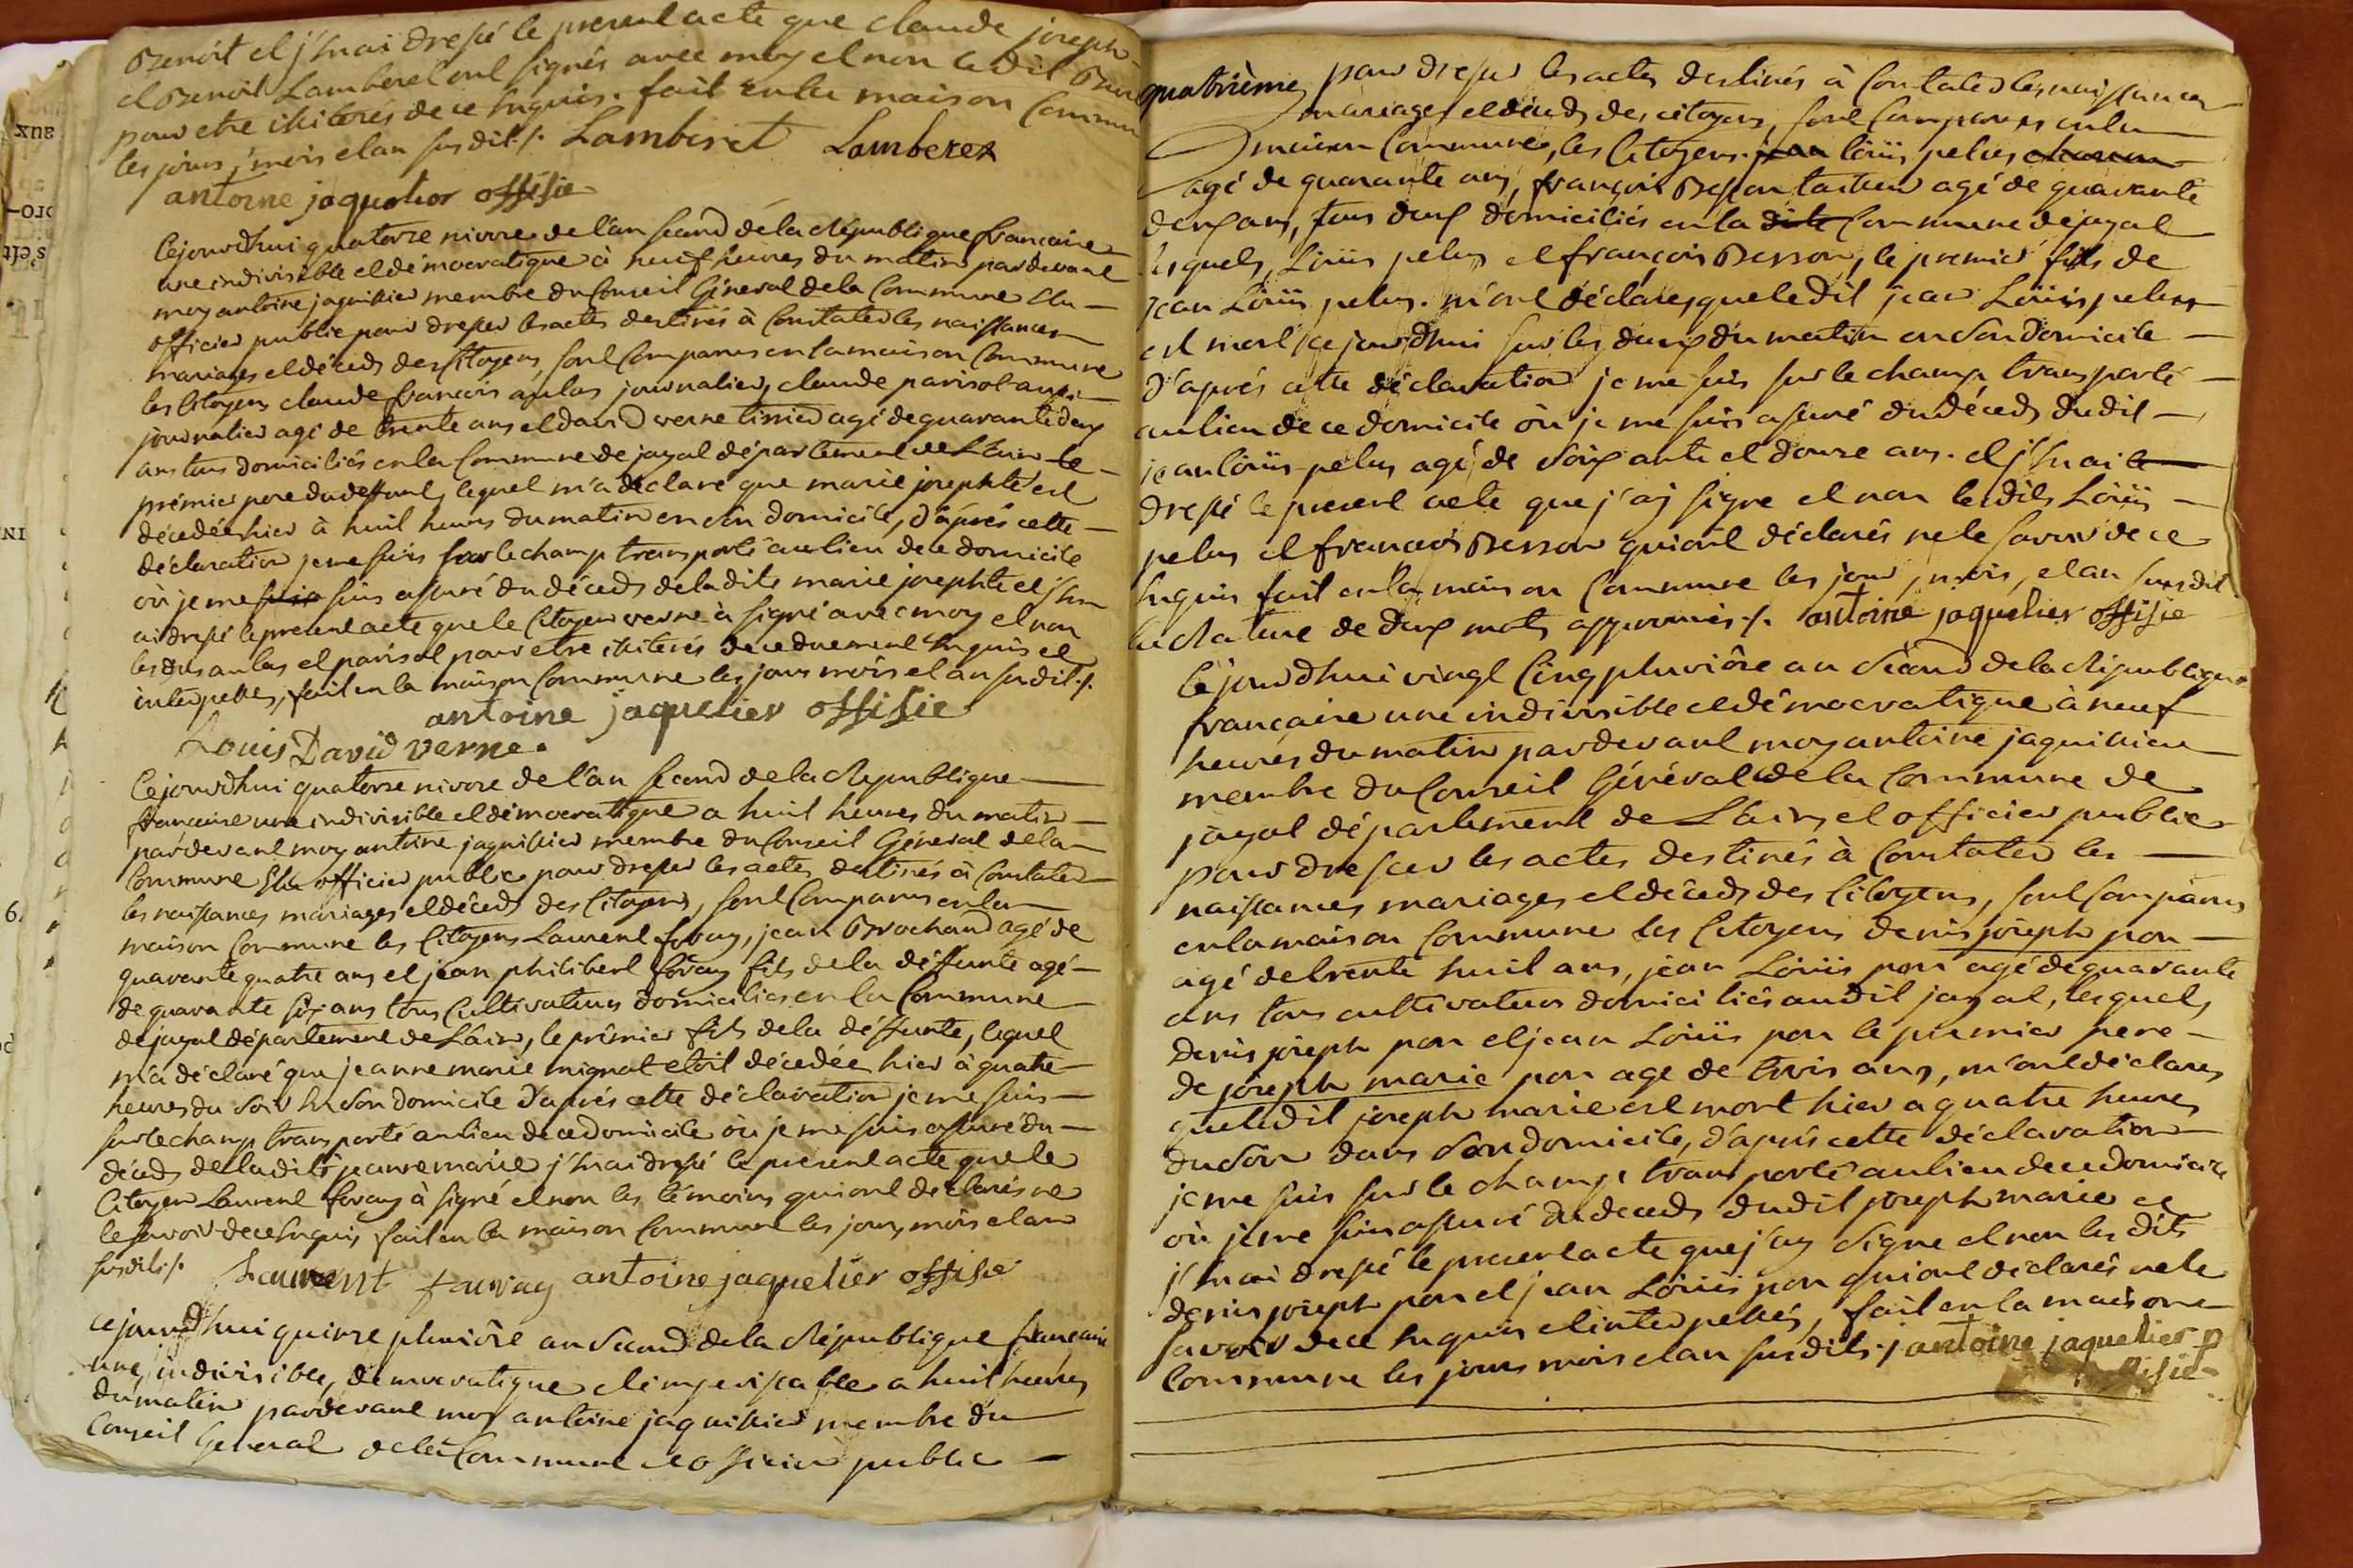 Benoit et j'hnai dressé le present acte que claude joseph
et Benoit Lamberel ont signés avec moy et non le dit
pour etre illiterés de ce enquis. fait en la maison Commu
les jours, mois et an susdit ./. Lamberet Lamberet
antoine jaquelier offisie
Cejourdhui quatorze nivose de l'an second de la République francaise
une indivisible et démocratique à neuf heures du matin pardevant
moy antoine jaquillier membre du Conseil Géneral de la Commune Elu
officier public pour dresser les actes destinés à Constater les naissances
mariages et décéds des Citoyens, sont Comparus en la maison Commune
les Citoyens claude francois aulas journalier, claude parisot aussi
journalier agé de trente ans et david verne tissier agé de quarante deux
ans tous domiciliés en la Commune de jayal département de L'ain le
prémier pere du deffunt, lequel m'a déclaré que marie josephte est
décedée hier à huit heures du matin en son domicile, d'après cette
déclaration je me suis sur le champ transporté au lieu de ce domicile
où je me suis suis assuré du décéds de la dite marie josephte et j'hn
ai dressé le present acte que le Citoyen verne à signé avec moy et non
les dits aulas et parisot pour etre illiterés de ce duement enquis et
interpellés, fait en la maison Commune les jours mois et an susdit ./.
antoine jaquelier offisie
Louis David verne.
Cejourdhui quatorze nivose de l'an second de la République
francaise une indivisible et démocratique a huit heures du matin
pardevant moy antoine jaquillier membre du Conseil Géneral de la
Commune Elu officier public pour dresser les actes destinés à Constater
les naissances mariages et décéds des Citoyens, sont Comparus en la
maison Commune les Citoyens Laurent favay, jean Brochand agé de
quarante quatre ans et jean philibert favay fils de la déffunte agé
de quarante six ans tous Cultivateurs domiciliés en la Commune
de jayal département de L'ain, le prémier fils de la déffunte, lequel
m'a déclaré que jeanne marie mignot etoit décedée hier à quatre
heures du soir en son domicile d'après cette déclaration je me suis
sur le champ transporté au lieu de ce domicile où je me suis assuré du
décéds de la dite jeanne marie j'hnai dressé le present acte que le
Citoyen Laurent favay à signé et non les témoins qui ont declarés ne
le savoir de ce enquis, fait en la maison Commune les jours mois et an
susdit ./. Laurent favay antoine jaquelier offisie
cejourdhui quinze pluviôse an second de la République francaise
une, indivisible, démocratique et imperissable a huit heures
du matin pardevant moy antoine jaquillier membre du
Conseil General de la Commune et officier public
quatrième pour dresser les actes destinés à Constater les naissances
mariages et décéds des citoyens, sont Comparus en la
maison Commune, les Citoyens jean Loüis pelus
agé de quarante ans, françois Besson tailleur agé de quarante
deux ans, tous deux domiciliés en la dite Commune de jayal
lesquels, Loüis pelus et françois Besson, le premier fils de
jean Loüis pelus. m'ont déclarés que le dit jean Loüis pelus
est mort cejourdhui sur les deux du matin en son domicile
d'après cette déclaration je me suis sur le champ transporté
au lieu de ce domicile où je me suis assuré du décéds du dit
jean loüis pelus agé de soixante et douze ans. et j'hnai le
dressé le present acte que j'ay signé et non les dits Loüis
pelus et françois Besson qui ont déclarés ne le savoir de ce
enquis fait en la maison Commune les jour, mois, et an susdit
la Rature de deux mots approuvés ./. antoine jaquelier offisie
Cejourdhui vingt Cinq pluviôse an Second de la République
francaise une indivisible et démocratique à neuf
heures du matin pardevant moy antoine jaquillier
membre du Conseil Général de la Commune de
jayal département de L'ain, et officier public
pour dresser les actes destinés à Constater les
naissances mariages et décéds des Citoyens, sont Comparus
en la maison Commune les Citoyens denis joseph pon
agé de trente huit ans, jean Loüis pon agé de quarante
ans tous cultivateurs domiciliés audit jayal, lesquels,
denis joseph pon et jean Loüis pon le premier pere
de joseph marie pon age de trois ans, m'ont déclarés
que le dit joseph marie est mort hier a quatre heures
du soir dans son domicile, d'après cette déclaration
je me suis sur le champ transporté au lieu de ce domicile
où je me suis assuré du deceds du dit joseph marie et
j'hnai dressé le present acte que j'ay signe et non les dits
denis joseph pon et jean Loüis pon qui ont déclarés ne le
savoir de ce enquis et interpellés, fait en la maison
Commune les jours mois et an susdits ./. antoine jaquelier